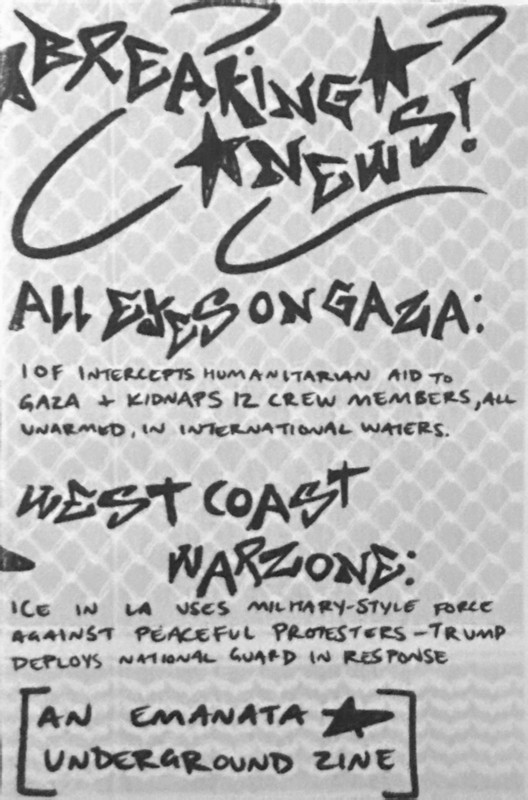 BREAKING
NEWS!
ALL EYES ON GAZA:
IOF INTERCEPTS HUMANITARIAN AID TO
GAZA + KIDNAPS 12 CREW MEMBERS, ALL
UNARMED, IN INTERNATIONAL WATERS.
WEST COAST
WARZONE:
ICE IN LA USES MILITARY-STYLE FORCE
AGAINST PEACEFUL PROTESTERS - TRUMP
DEPLOYS NATIONAL GUARD IN RESPONSE
[AN EMANATA ★
UNDERGROUND ZINE]